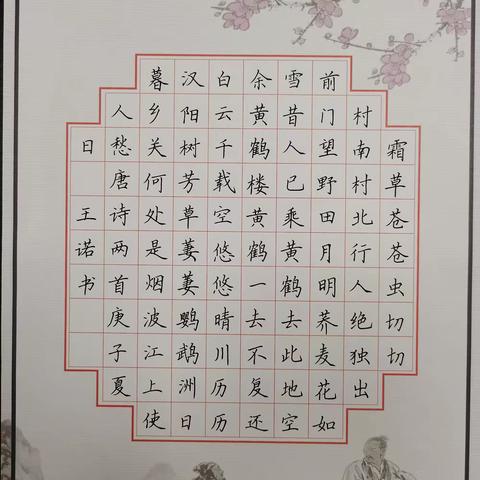 霜草苍苍虫切切
村南村北行人绝独出
前门望野田月明荞麦花如
雪昔人已乘黄鹤去此地空
余黄鹤楼黄鹤一去不复还
白云千载空悠悠晴川历历
汉阳树芳草萋萋鹦鹉洲日
暮乡关何处是烟波江上使
人愁唐诗两首庚子夏
日 王诺书